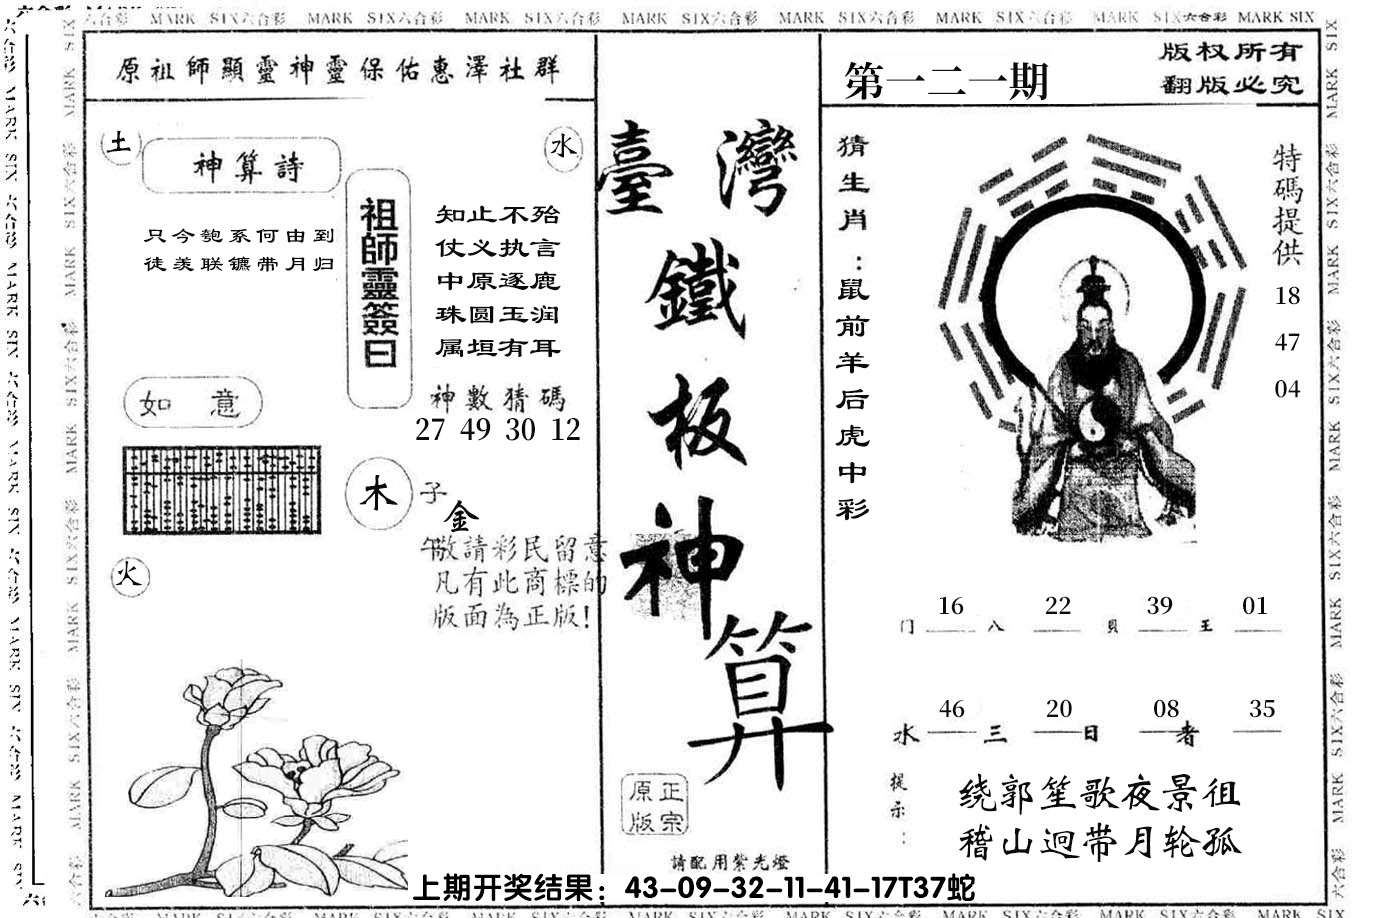 MARK SIX六合彩 MARK SIX六合彩 MARK SIX六合彩 MARK SIX六合彩 MARK SIX六合彩 MARK SIX六合彩 MARK SIX六合彩 MARK SIX
原祖師顯靈神靈保佑惠澤社群
土
神算詩
水
只今匏系何由到
徒羡联镳带月归
祖師靈簽曰
知止不殆
仗义执言
中原逐鹿
珠圆玉润
属垣有耳
神數猜碼
27 49 30 12
如意
木
子
金
午
火
敬請彩民留意
凡有此商標的
版面為正版!
臺灣
鐵
板
神
算
正宗
原版
請配用紫光燈
第一二一期
版权所有
翻版必究
猜生肖:鼠前羊后虎中彩
特碼提供
18
47
04
16 22 39 01
门 八 貝 王
46 20 08 35
水 三 日 者
提示:
绕郭笙歌夜景徂
稽山迥带月轮孤
上期开奖结果：43-09-32-11-41-17T37蛇